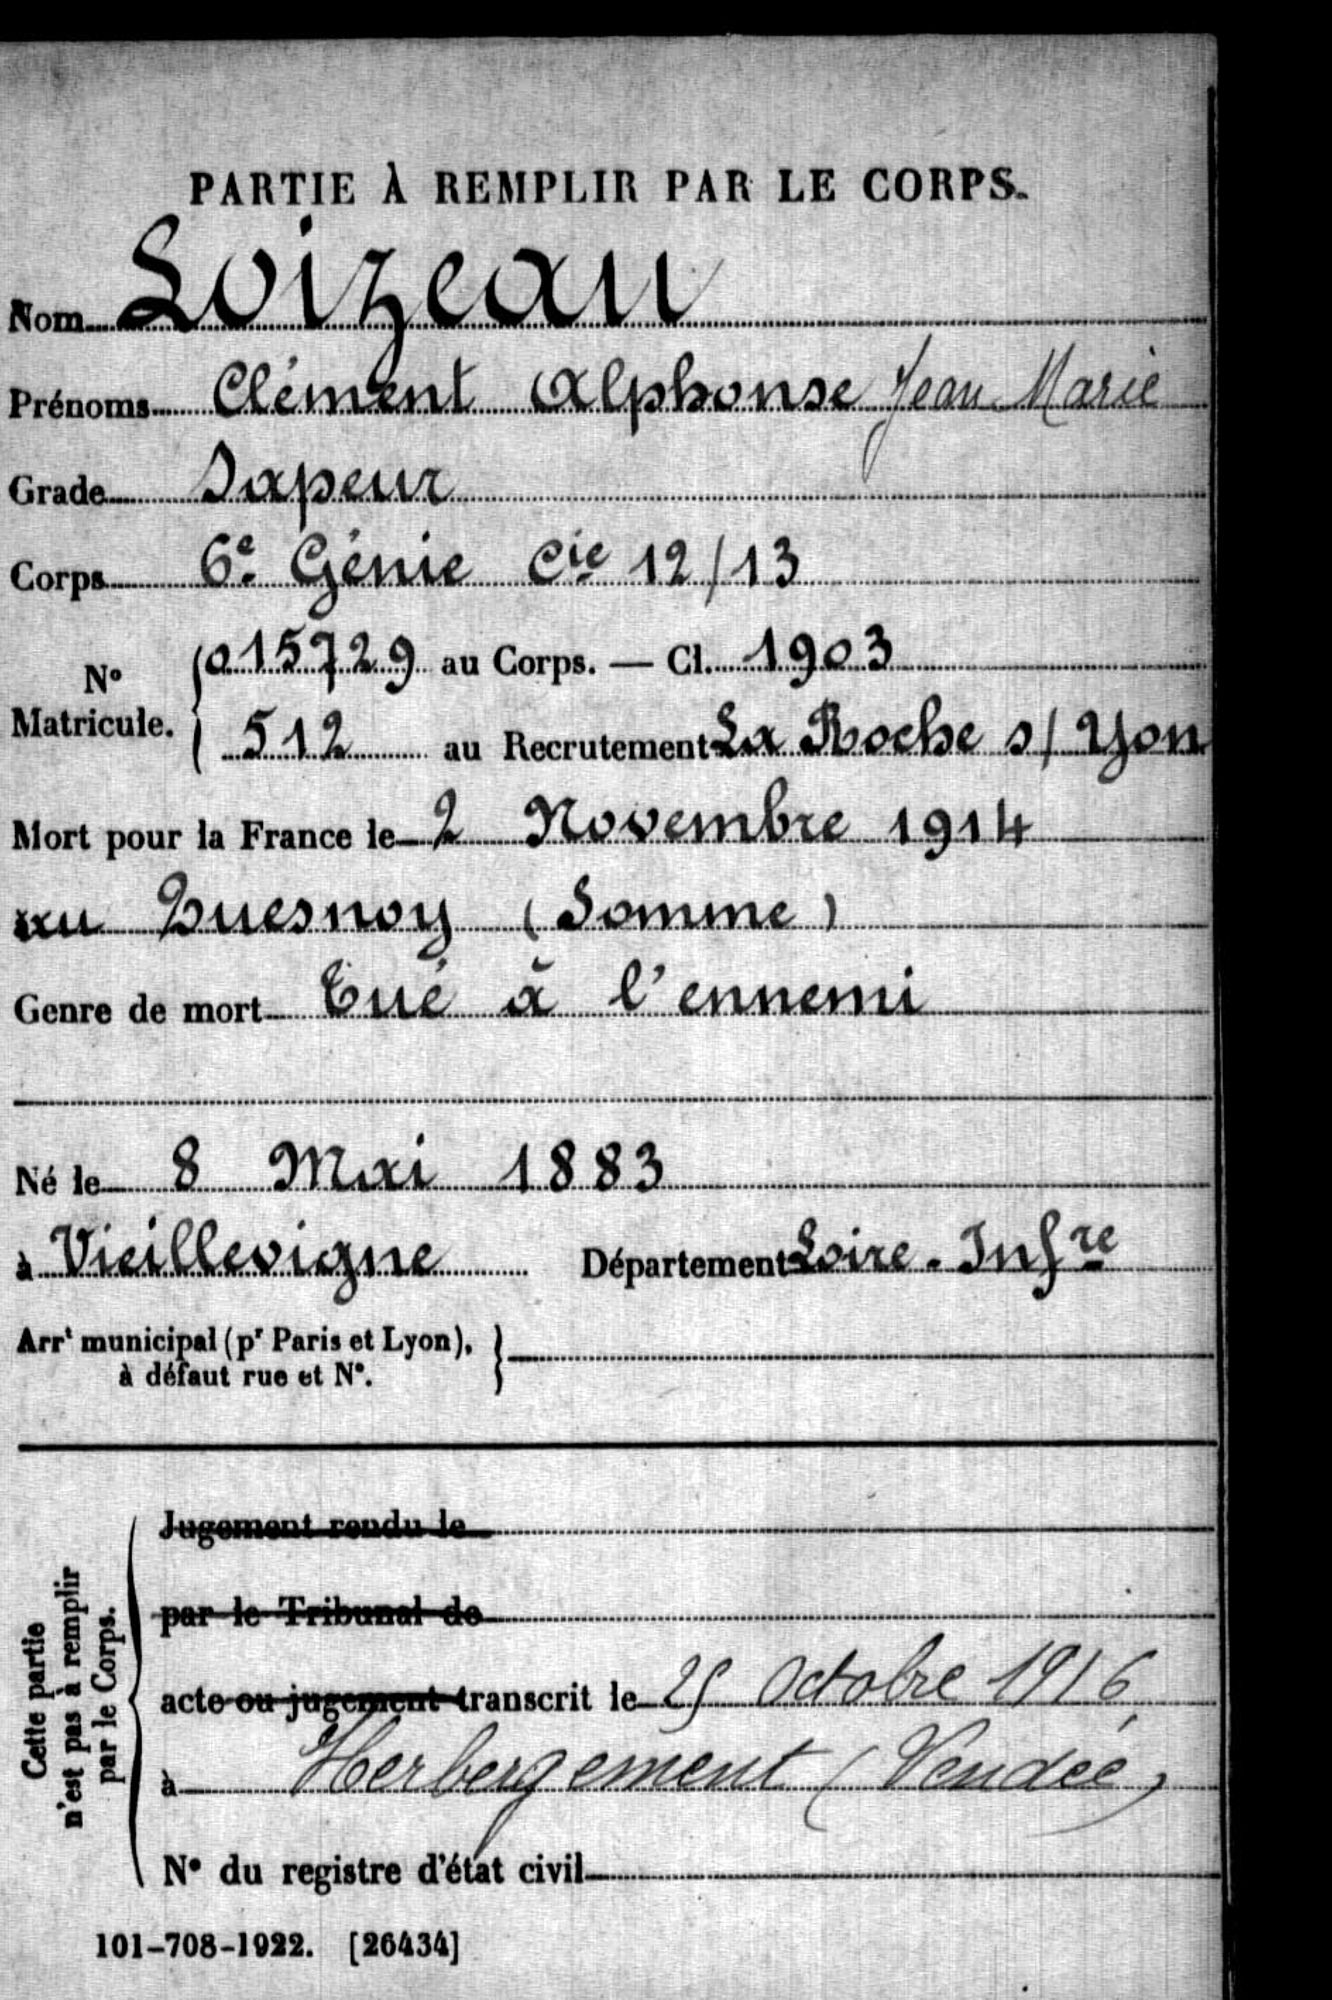 PARTIE À REMPLIR PAR LE CORPS.
Nom Loizeau
Prénoms Clément Alphonse Jean Marie
Grade Sapeur
Corps 6e Génie Cie 12/13
No Matricule. { 015729 au Corps. — Cl. 1903
512 au Recrutement La Roche s/ Yon
Mort pour la France le 2 Novembre 1914
au Quesnoy (Somme)
Genre de mort Tué à l'ennemi
Né le 8 Mai 1883
à Vieillevigne Département Loire-Infre
Arrt municipal (pr Paris et Lyon), à défaut rue et No. }
Cette partie n'est pas à remplir par le Corps.
Jugement rendu le
par le Tribunal de
acte ou jugement transcrit le 25 Octobre 1916
à Herbergement (Vendée)
No du registre d'état civil
101-708-1922. [26434]